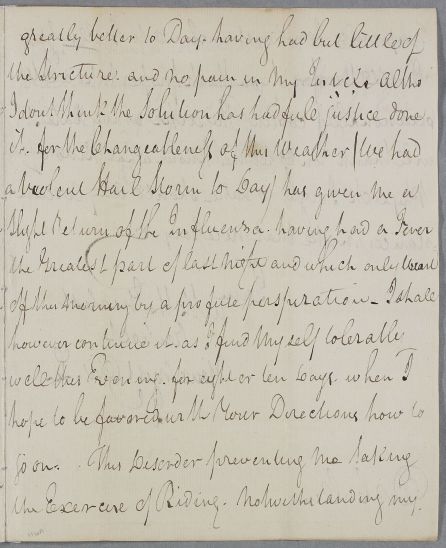 greatly better to Day. having had but little of
the Stricture. and no pain in my Testicle altho
I dont think the Solution has had full justice done
it. for the Changeableness of this Weather (We had
a Violent Hail Storm to Day) has given me a
slight Return of the Influenza. having had a Fever
the Greatest part of last night and which only went
off this morning by a profuse perspiration_ I shall
however continue it. as I find myself tolerably
well this Evening. for eight or ten Days. when I
hope to be favored with Your Directions how to
go on. . This Disorder preventing me taking
the Exercise of Riding. Notwithstanding my